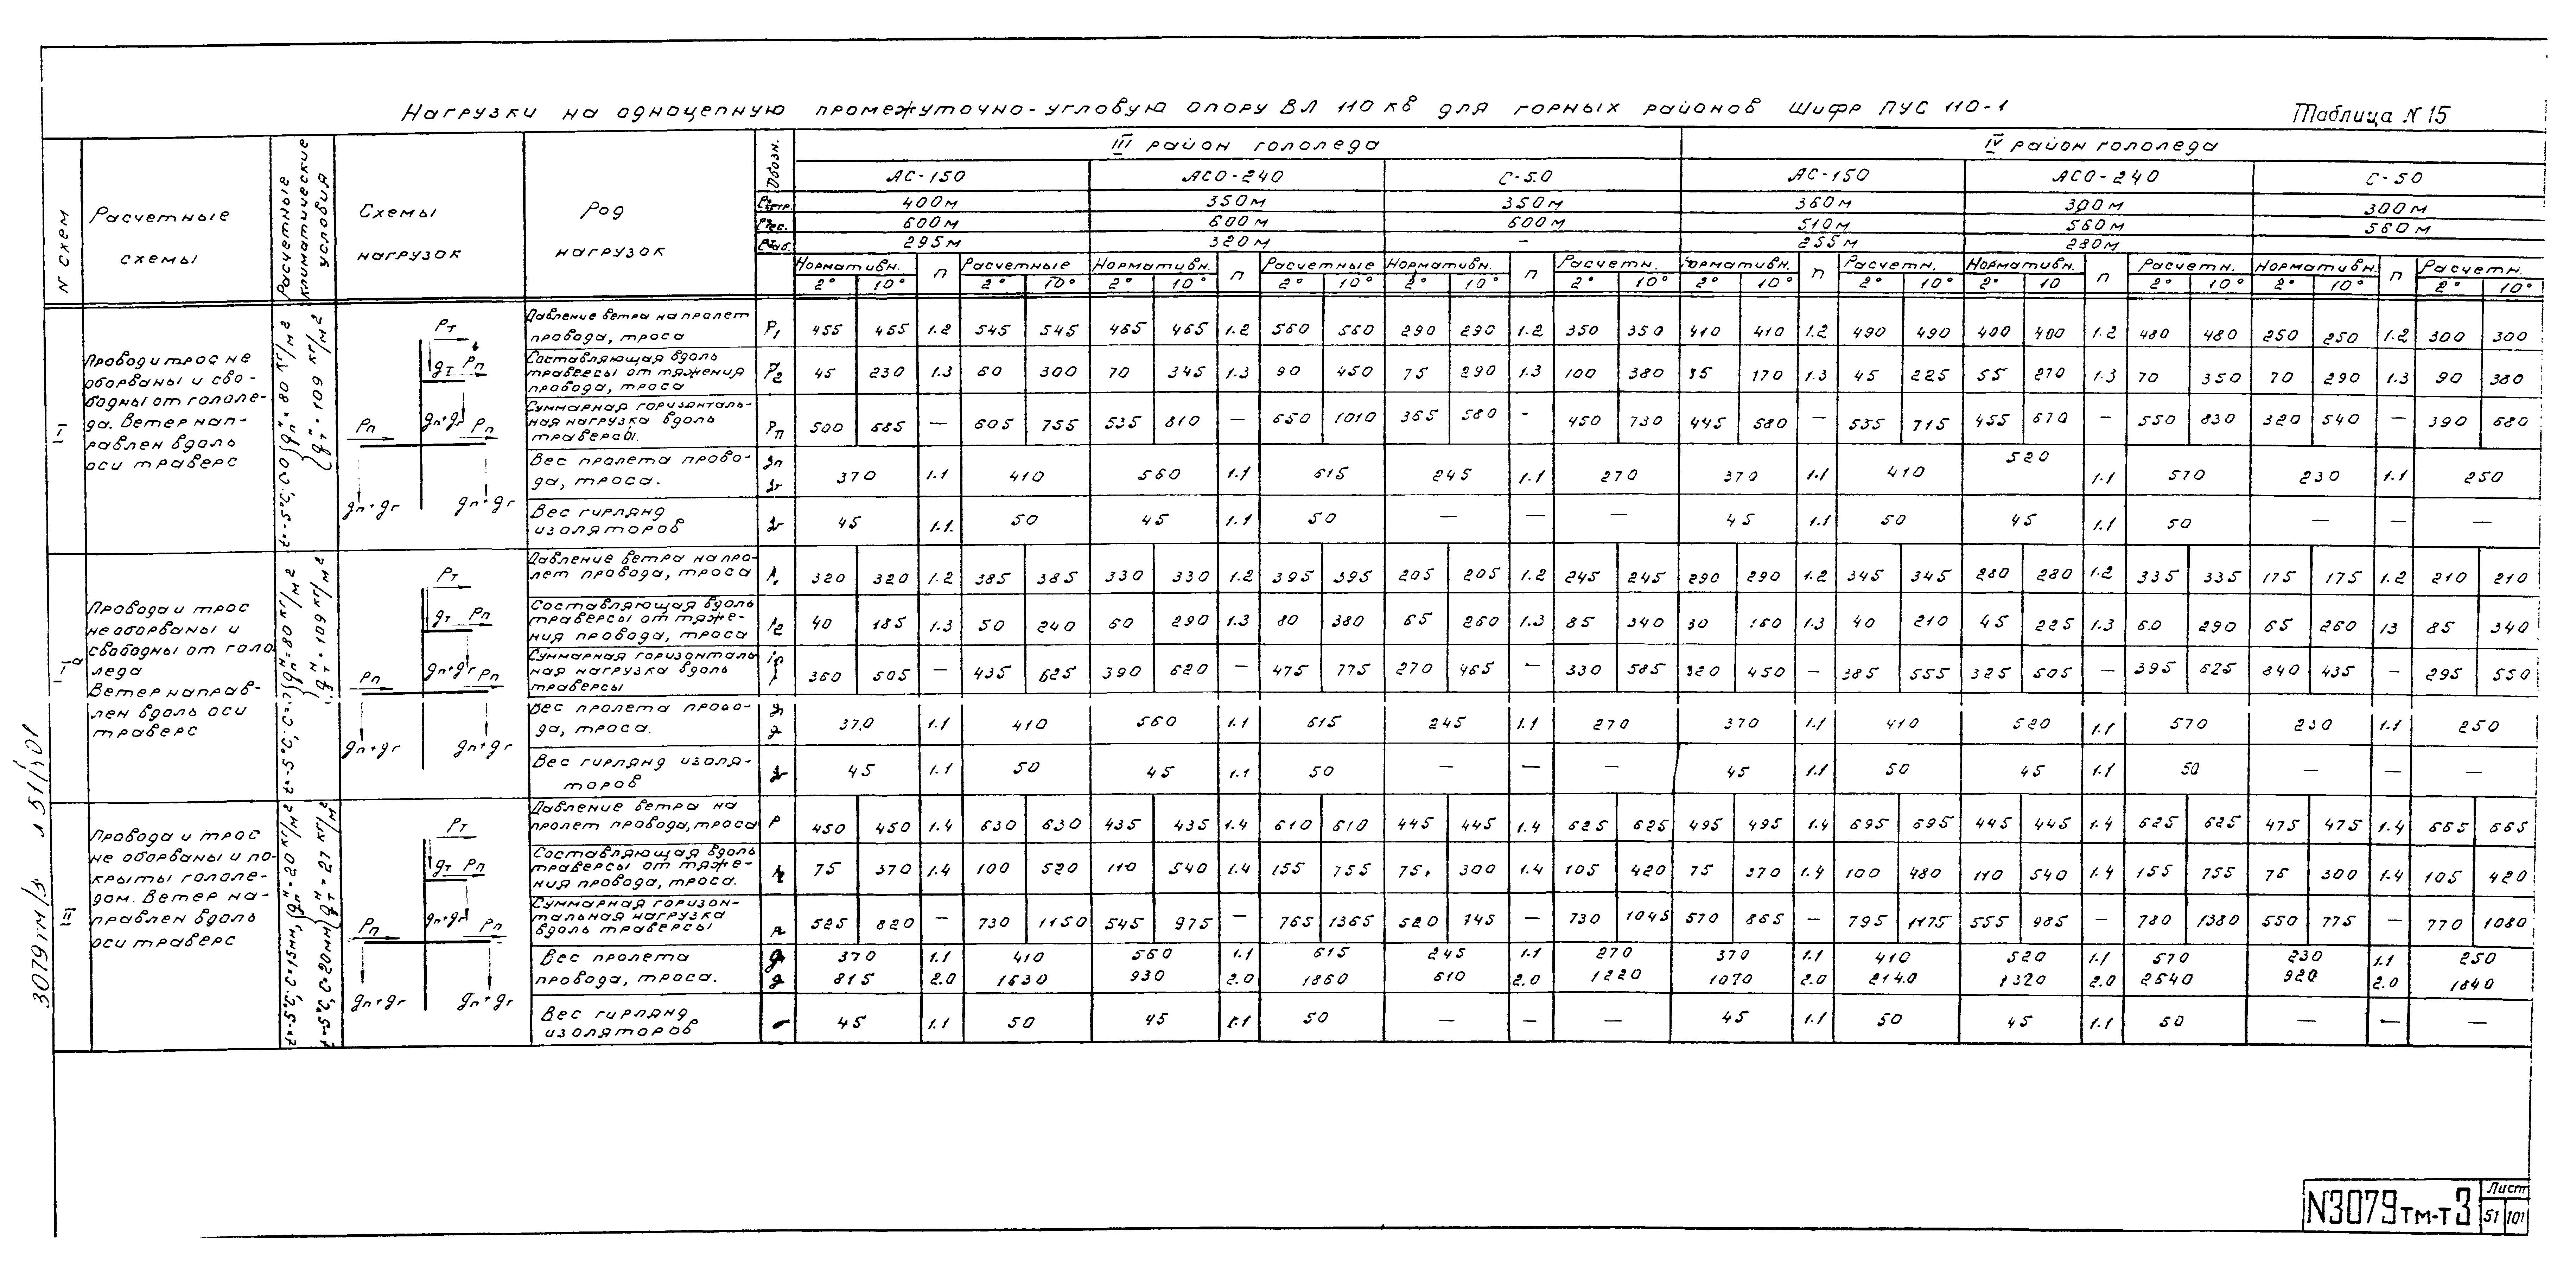 Нагрузки на одноцепную промежуточно-угловую опору ВЛ 110 кв для горных районов шифр ПУС 110-1
Таблица N 15
N схем
Расчетные схемы
Расчетные климатические условия
Схемы нагрузок
Род нагрузок
Обозн.
III район гололеда
IV район гололеда
АС-150 АСО-240 С-50 АС-150 АСО-240 С-50
400м 350м 350м 360м 300м 300м
600м 600м 600м 510м 560м 560м
295м 320м – 255м 280м
Нормативн. п Расчетные Нормативн. п Расчетные Нормативн. п Расчетн. Нормативн. п Расчетн. Нормативн. п Расчетн. Нормативн. п Расчетн.
2° 10° 2° 10° 2° 10° 2° 10° 2° 10° 2° 10° 2° 10° 2° 10° 2° 10 2° 10° 2° 10° 2° 10°
I
Провод и трос не
оборваны и сво-
бодны от гололе-
да. Ветер нап-
равлен вдоль
оси траверс
Рт
gт Рп
Рп Рп
gп+gг gп+gг
Давление ветра на пролет
провода, троса
Р1 455 455 1.2 545 545 465 465 1.2 560 560 290 290 1.2 350 350 410 410 1.2 490 490 400 400 1.2 480 480 250 250 1.2 300 300
Составляющая вдоль
траверсы от тяжения
провода, троса
Р2 45 230 1.3 60 300 70 345 1.3 90 450 75 290 1.3 100 380 35 170 1.3 45 225 55 270 1.3 70 350 70 290 1.3 90 380
Суммарная горизонталь-
ная нагрузка вдоль
траверсы.
Рп 500 685 — 605 755 535 810 — 650 1010 365 580 - 450 730 445 580 — 535 715 455 670 — 550 830 320 540 — 390 680
Вес пролета прово-
да, троса.
370 1.1 410 560 1.1 615 245 1.1 270 370 1.1 410 520 1.1 570 230 1.1 250
Вес гирлянд
изоляторов
45 1.1. 50 45 1.1 50 — — — 45 1.1 50 45 1.1 50 — — —
Iа
Провода и трос
не оборваны и
свободны от голо
леда
Ветер направ-
лен вдоль оси
траверс
Рт
gт Рп
Рп Рп
gп+gг gп+gг
Давление ветра на про-
лет провода, троса
320 320 1.2 385 385 330 330 1.2 395 395 205 205 1.2 245 245 290 290 1.2 345 345 280 280 1.2 335 335 175 175 1.2 210 210
Составляющая вдоль
траверсы от тяже-
ния провода, троса
40 185 1.3 50 240 60 290 1.3 80 380 65 260 1.3 85 340 30 160 1.3 40 210 45 225 1.3 60 290 65 260 13 85 340
Суммарная горизонталь
ная нагрузка вдоль
траверсы
360 505 — 435 625 390 620 — 475 775 270 465 — 330 585 320 450 — 385 555 325 505 — 395 625 840 435 — 295 550
Вес пролета прово-
да, троса.
370 1.1 410 560 1.1 615 245 1.1 270 370 1.1 410 520 1.1 570 230 1.1 250
Вес гирлянд изоля-
торов
45 1.1 50 45 1.1 50 — — — 45 1.1 50 45 1.1 50 — — —
II
Провода и трос
не оборваны и по-
крыты гололе-
дом. Ветер на-
правлен вдоль
оси траверс
Рт
gт Рп
Рп Рп
gп+gг gп+gг
Давление ветра на
пролет провода, троса
450 450 1.4 630 630 435 435 1.4 610 610 445 445 1.4 625 625 495 495 1.4 695 695 445 445 1.4 625 625 475 475 1.4 665 665
Составляющая вдоль
траверсы от тяже-
ния провода, троса.
75 370 1.4 100 520 110 540 1.4 155 755 75 300 1.4 105 420 75 370 1.4 100 480 110 540 1.4 155 755 75 300 1.4 105 420
Суммарная горизон-
тальная нагрузка
вдоль траверсы
525 820 — 730 1150 545 975 — 765 1365 520 745 — 730 1045 570 865 — 795 1175 555 985 — 780 1380 550 775 — 770 1080
Вес пролета
провода, троса.
370 1.1 410 560 1.1 615 245 1.1 270 370 1.1 410 520 1.1 570 230 1.1 250
815 2.0 1630 930 2.0 1860 610 2.0 1220 1070 2.0 2140 1320 2.0 2640 920 2.0 1840
Вес гирлянд
изоляторов
45 1.1 50 45 1.1 50 — — — 45 1.1 50 45 1.1 50 — — —
N3079тм-т3
Лист
51 101